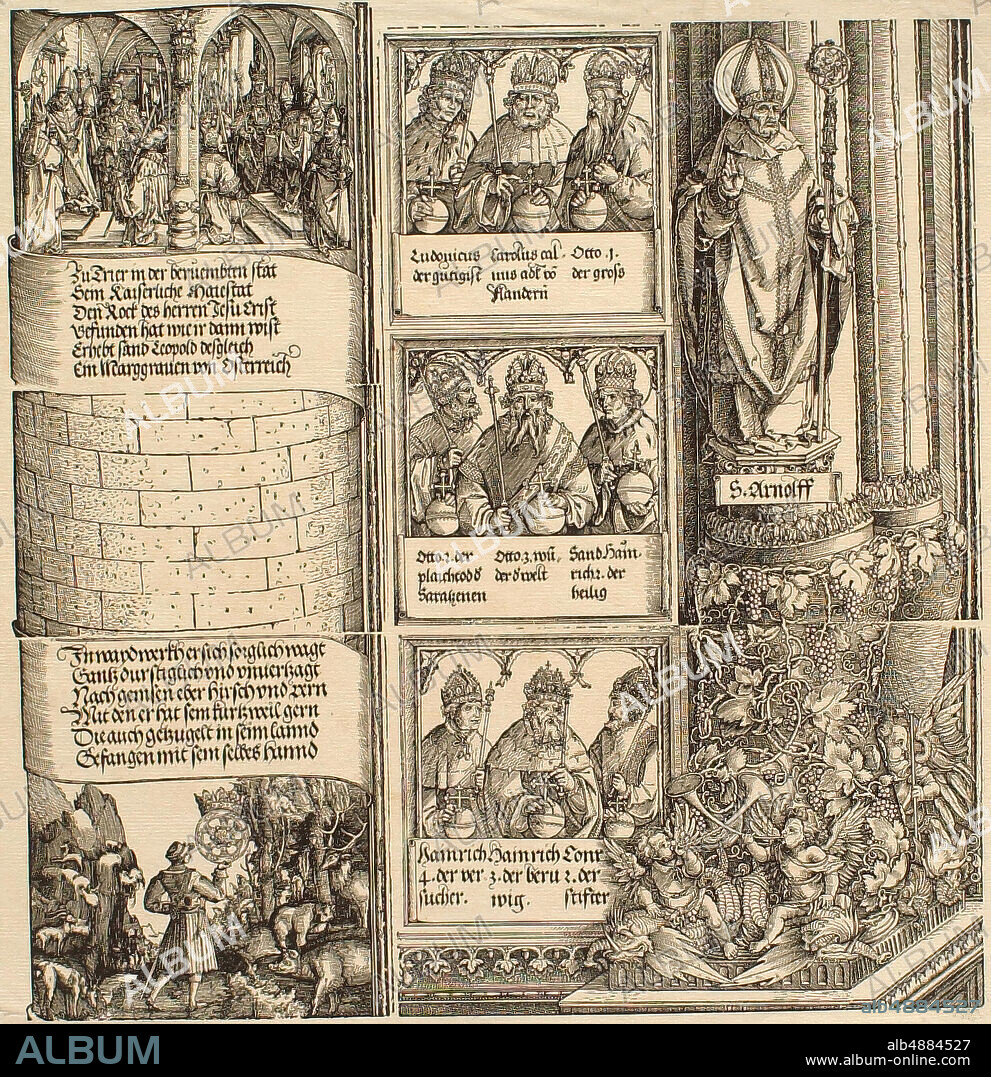 Zu Trier in der beruembten stat
Sein Kaiserliche Maiestat
Den Rock des herren Jesu Crist
Gefunden hat wie ir dann wist
Erhebt sand Leopold desgleich
Ein Marggrauen von Osterreich
In waydwerkh er sich sorglich wagt
Gantz durstiglich und unuertzagt
Nach gemsen eber hirsch vnd pern
Mit den er hat sein kurtzweil gern
Die auch getzugelt in seim lannd
Gefangen mit sein selbs hannd
Ludovicus Carolus cal- Otto .1.
der gutigist uus der gross
Flandern
Otto.2. der Otto.3. wu- Sand Hain-
der d welt rich 2. der
Saratzenen heilig
Hainrich Hainrich Conr
4. der ver 3. der beru 2. der
sucher. wig. stifter
S. Arnolff
ALBUM
alb4884527
www.album-online.com